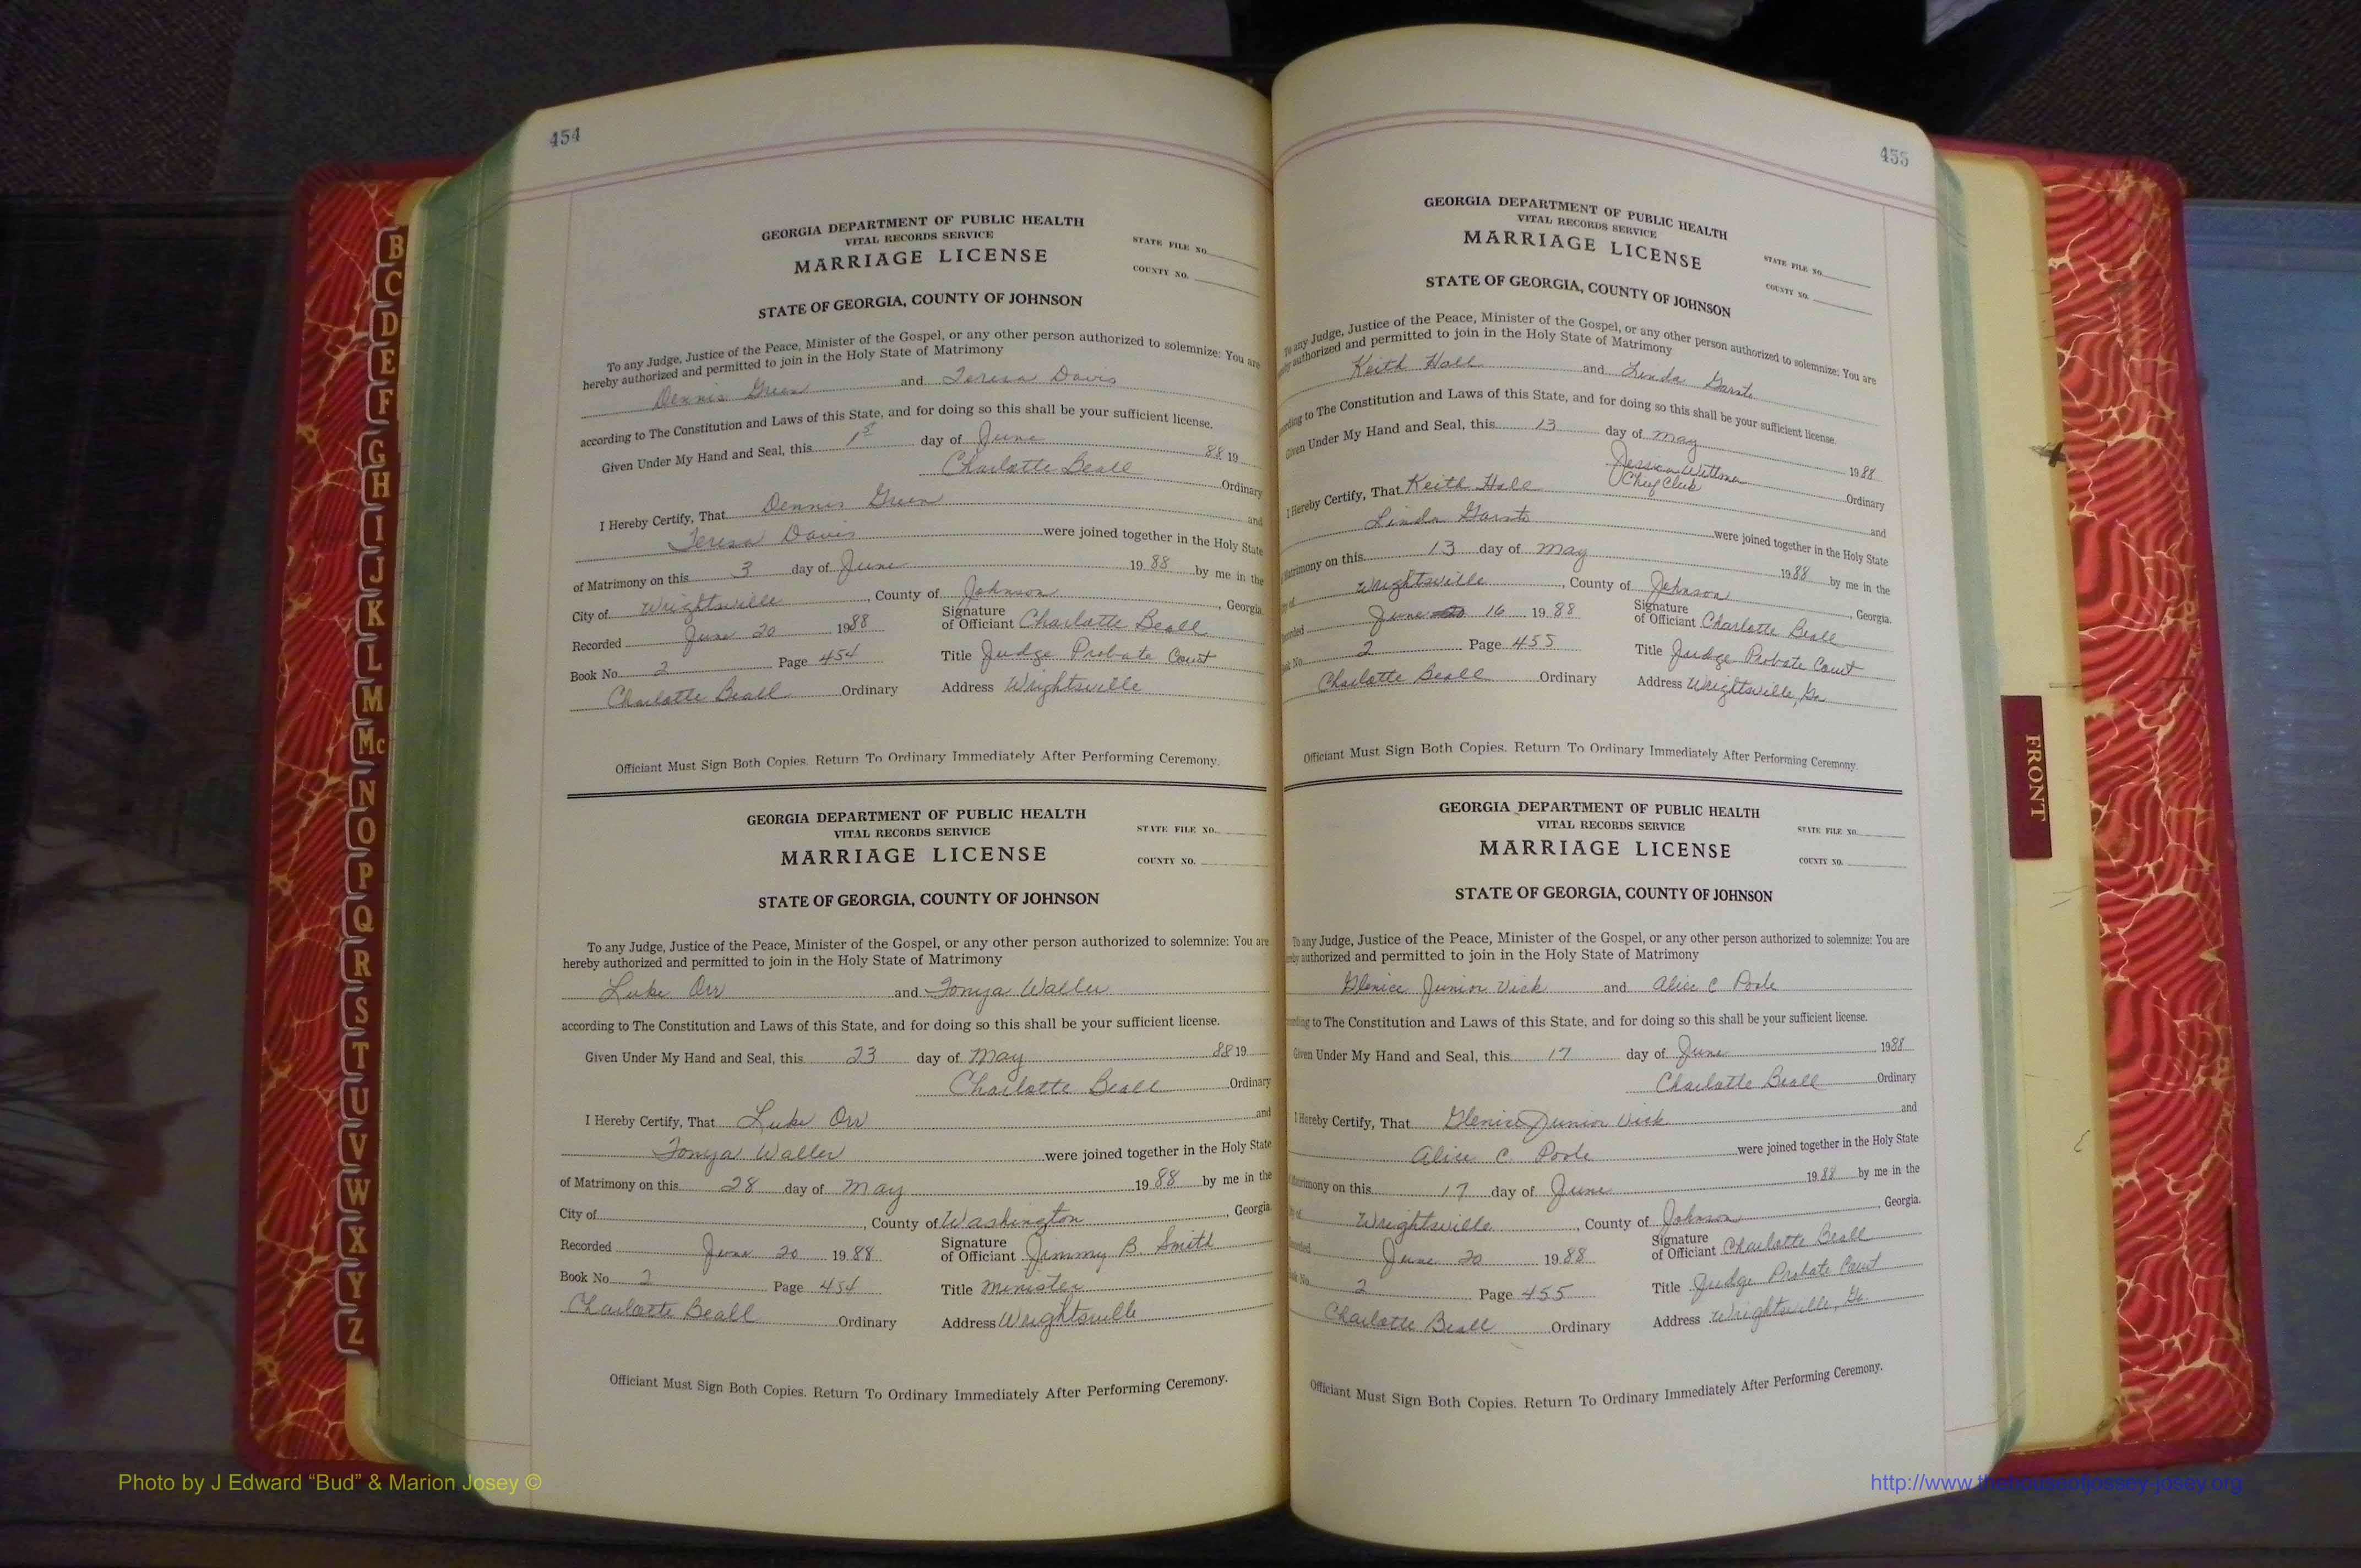 454
GEORGIA DEPARTMENT OF PUBLIC HEALTH
VITAL RECORDS SERVICE
MARRIAGE LICENSE
STATE FILE NO.
COUNTY NO.
STATE OF GEORGIA, COUNTY OF JOHNSON
To any Judge, Justice of the Peace, Minister of the Gospel, or any other person authorized to solemnize: You are
hereby authorized and permitted to join in the Holy State of Matrimony
Dennis Green and Teresa Davis
according to The Constitution and Laws of this State, and for doing so this shall be your sufficient license.
Given Under My Hand and Seal, this 1st day of June 88 19
Charlotte Beall Ordinary
I Hereby Certify, That Dennis Green and
Teresa Davis were joined together in the Holy State
of Matrimony on this 3 day of June 19 88 by me in the
City of Wrightsville, County of Johnson, Georgia.
Recorded June 20 1988 Signature of Officiant Charlotte Beall
Book No. 2 Page 454 Title Judge Probate Court
Charlotte Beall Ordinary Address Wrightsville
Officiant Must Sign Both Copies. Return To Ordinary Immediately After Performing Ceremony.
GEORGIA DEPARTMENT OF PUBLIC HEALTH
VITAL RECORDS SERVICE
MARRIAGE LICENSE
STATE FILE NO.
COUNTY NO.
STATE OF GEORGIA, COUNTY OF JOHNSON
To any Judge, Justice of the Peace, Minister of the Gospel, or any other person authorized to solemnize: You are
hereby authorized and permitted to join in the Holy State of Matrimony
Luke Orr and Tonya Waller
according to The Constitution and Laws of this State, and for doing so this shall be your sufficient license.
Given Under My Hand and Seal, this 23 day of May 88 19
Charlotte Beall Ordinary
I Hereby Certify, That Luke Orr and
Tonya Waller were joined together in the Holy State
of Matrimony on this 28 day of May 19 88 by me in the
City of , County of Washington, Georgia.
Recorded June 20 19 88 Signature of Officiant Jimmy B. Smith
Book No. 2 Page 454 Title Minister
Charlotte Beall Ordinary Address Wrightsville
Officiant Must Sign Both Copies. Return To Ordinary Immediately After Performing Ceremony.
455
GEORGIA DEPARTMENT OF PUBLIC HEALTH
VITAL RECORDS SERVICE
MARRIAGE LICENSE
STATE FILE NO.
COUNTY NO.
STATE OF GEORGIA, COUNTY OF JOHNSON
To any Judge, Justice of the Peace, Minister of the Gospel, or any other person authorized to solemnize: You are
authorized and permitted to join in the Holy State of Matrimony
Keith Hall and Linda
to The Constitution and Laws of this State, and for doing so this shall be your sufficient license.
Given Under My Hand and Seal, this 13 day of May 1988
Jessica
Chief Clerk Ordinary
I Hereby Certify, That Keith Hall and
Linda were joined together in the Holy State
Matrimony on this 13 day of May 1988 by me in the
City of Wrightsville, County of Johnson, Georgia.
Recorded June 16 19 88 Signature of Officiant Charlotte Beall
Book No. 2 Page 455 Title Judge Probate Court
Charlotte Beall Ordinary Address Wrightsville, Ga
Officiant Must Sign Both Copies. Return To Ordinary Immediately After Performing Ceremony.
GEORGIA DEPARTMENT OF PUBLIC HEALTH
VITAL RECORDS SERVICE
MARRIAGE LICENSE
STATE FILE NO.
COUNTY NO.
STATE OF GEORGIA, COUNTY OF JOHNSON
To any Judge, Justice of the Peace, Minister of the Gospel, or any other person authorized to solemnize: You are
authorized and permitted to join in the Holy State of Matrimony
Glenice Junior Vick and Alice C Poole
to The Constitution and Laws of this State, and for doing so this shall be your sufficient license.
Given Under My Hand and Seal, this 17 day of June 1988
Charlotte Beall Ordinary
I Hereby Certify, That Glenice Junior Vick and
Alice C. Poole were joined together in the Holy State
Matrimony on this 17 day of June 19 88 by me in the
City of Wrightsville, County of Johnson, Georgia.
Recorded June 20 19 88 Signature of Officiant Charlotte Beall
Book No. 2 Page 455 Title Judge Probate Court
Charlotte Beall Ordinary Address Wrightsville, Ga.
Officiant Must Sign Both Copies. Return To Ordinary Immediately After Performing Ceremony.
B
C
D
E
F
G
H
I
J
K
L
M
Mc
N
O
P
Q
R
S
T
U
V
W
X
Y
Z
FRONT
Photo by J Edward “Bud” & Marion Josey ©
http://www.thehouseofjossey-josey.org